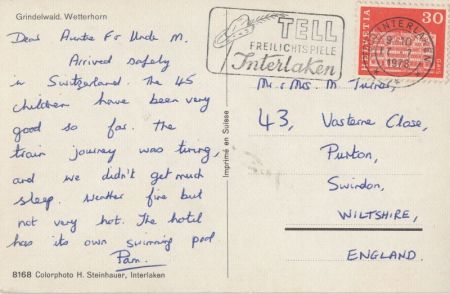 Grindelwald. Wetterhorn
Dear Auntie F & Uncle M.
Arrived safely
in Switzerland. The 45
children have been very
good so far. The
train journey was tiring,
and we didn't get much
sleep. Weather fine but
not very hot. The hotel
has its own swimming pool
Pam.
8168 Colorphoto H. Steinhauer, Interlaken
Imprimé en Suisse
TELL
FREILICHTSPIELE
Interlaken
INTERLAKEN
1978
HELVETIA
30
GAIS
Mr & Mrs. M. Turner,
43, Vasterne Close,
Purton,
Swindon,
WILTSHIRE,
ENGLAND.